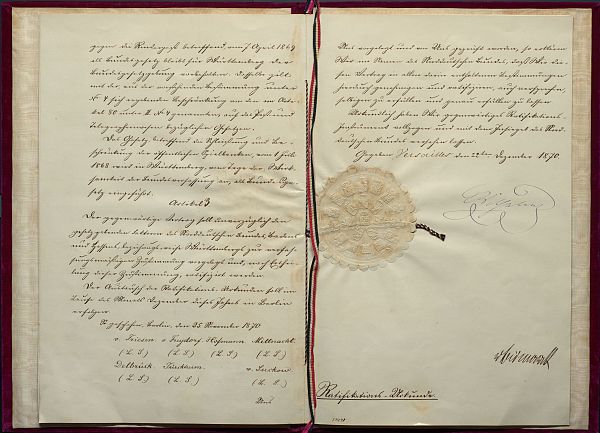 gegen die Rinderpest betreffend, vom 7. April 1869
als Bundesgesetz bleibt für Württemberg der
Bundesgesetzgebung vorbehalten. Dasselbe gilt
mit der, aus der vorstehenden Bestimmung unter
№ 4 sich ergebenden Beschränkung von den im Arti-
kel 80 unter II. № 4 genannten, auf das Post und
Telegraphenwesen bezüglichen Gesetzen.
Das Gesetz, betreffend die Schließung und Be-
schränkung der öffentlichen Spielbanken, vom 1. Juli
1868 wird in Württemberg, vom Tage der Wirk-
samkeit der Bundesverfassung an, als Bundes-Ge-
setz eingeführt.
Artikel 3
Der gegenwärtige Vertrag soll unverzüglich den
gesetzgebenden Faktoren des Norddeutschen Bundes, Badens
und Hessens, beziehungsweise Württembergs zur verfas-
sungsmäßigen Zustimmung vorgelegt und, nach Erthei-
lung dieser Zustimmung, ratifizirt werden.
Der Austausch der Ratifikations-Urkunden soll im
Laufe des Monats Dezember dieses Jahres in Berlin
erfolgen.
So geschehen, Berlin, den 25 November 1870.
v. Friesen v. Freydorf Hofmann Mittnacht.
(L.S.) (L.S.) (L.S.) (L.S.)
Delbrück Türckheim v. Suckow
(L.S.) (L.S.) (L.S.)
Uns
Uns vorgelegt und von Uns geprüft worden, so erklären
Wir im Namen des Norddeutschen Bundes, daß Wir die-
sen Vertrag in allen darin enthaltenen Bestimmungen
hierdurch genehmigen und ratifiziren, auch versprechen,
selbigen zu erfüllen und genau erfüllen zu lassen.
Urkundlich haben Wir gegenwärtiges Ratifikations-
Instrument vollzogen und mit dem Insiegel des Nord-
deutschen Bundes versehen lassen.
Gegeben Versailles den 22ten Dezember 1870.
v Bismarck
Ratifikations-Urkunde.